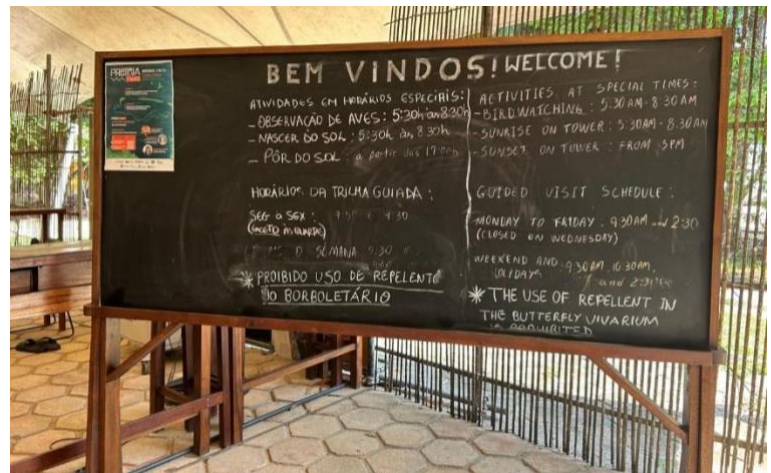 BEM VINDOS!
ATIVIDADES EM HORÁRIOS ESPECIAIS:
- OBSERVAÇÃO DE AVES: 5:30h às 8:30h
- NASCER DO SOL: 5:30h às 8:30h
- PÔR DO SOL: a partir das
HORÁRIOS DA TRILHA GUIADA:
SEG a SEX:
SEMANA 9:30
* PROIBIDO USO DE REPELENTE
NO BORBOLETÁRIO
WELCOME!
ACTIVITIES AT SPECIAL TIMES:
- BIRDWATCHING: 5:30AM - 8:30AM
- SUNRISE ON TOWER: 5:30AM - 8:30AM
- SUNSET ON TOWER: FROM 5PM
GUIDED VISIT SCHEDULE:
MONDAY TO FRIDAY: 9:30AM and 2:30
(CLOSED ON WEDNESDAY)
WEEKEND AND 9:30AM, 10:30AM,
OLIDAYS and
* THE USE OF REPELLENT IN
THE BUTTERFLY VIVARIUM
IS PROHIBITED